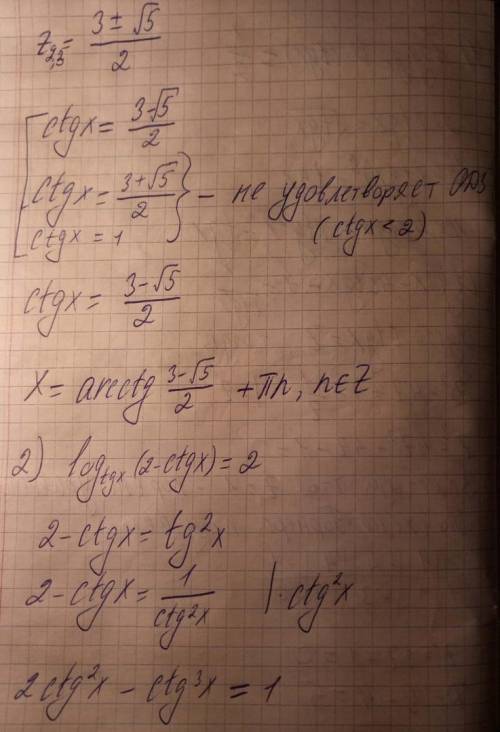 z₂,₃ = (3 ± √5)/2
ctgx = (3-√5)/2
ctgx = (3+√5)/2 } – не удовлетворяет ОДЗ
ctgx = 1 (ctgx < 2)
ctgx = (3-√5)/2
x = arcctg (3-√5)/2 + πn, n∈Z
2) log_tgx (2-ctgx) = 2
2-ctgx = tg²x
2-ctgx = 1/ctg²x |· ctg²x
2ctg²x - ctg³x = 1